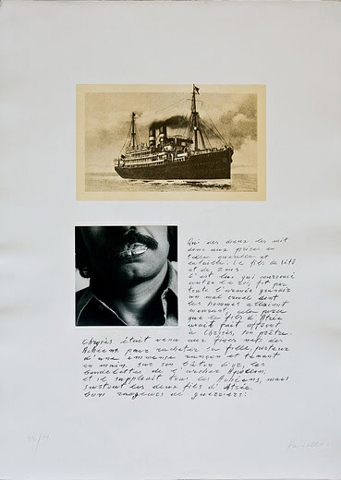 Qui des dieux les mit
donc aux prises en
telle querelle et
bataille? Le fils de Létô
et de Zeus.
C'est lui qui courroucé
contre le roi, fit par
toute l'armée grandir
un mal cruel dont
les hommes allaient
mourant; cela parce
que le fils d'Atrée
avait fait affront
à Chrysès, son prêtre.
Chrysès était venu aux fines nefs des
Achéens pour racheter sa fille, porteur
d'une immense rançon et tenant
en main, sur son bâton d'or, les
bandelettes de l'archer Apollon,
et il suppliait tous les Achéens, mais
surtout les deux fils d'Atrée
bons rangeurs de guerriers: